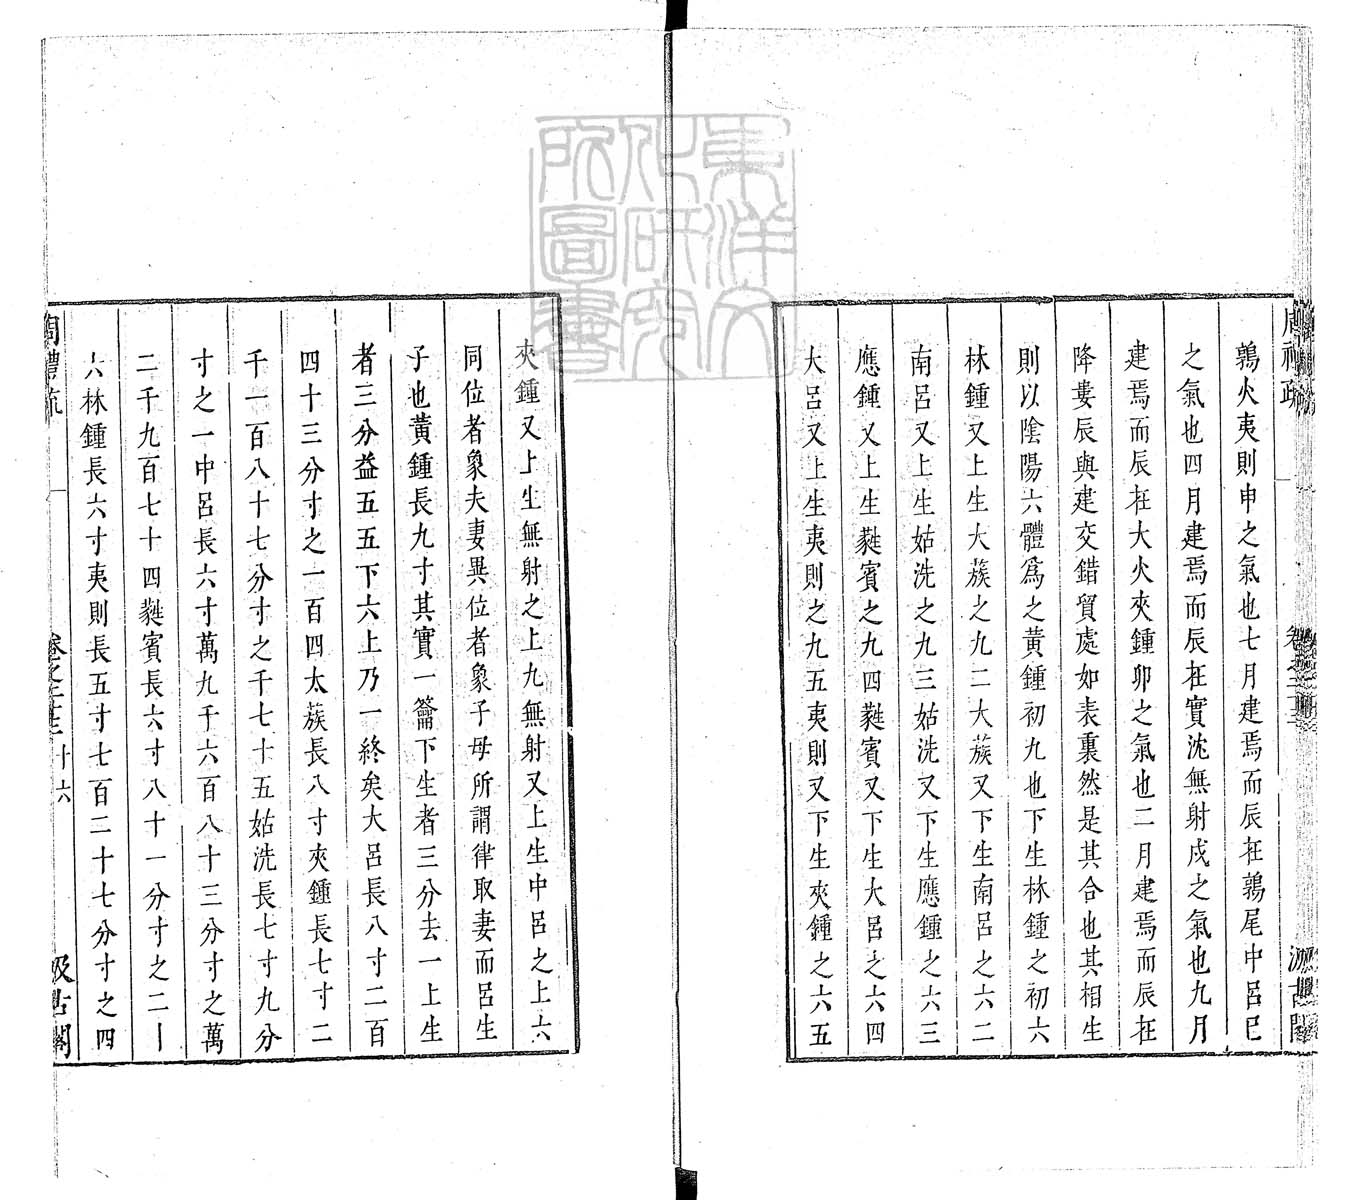 鶉火夷則申之氣也七月建焉而辰在鶉尾中呂巳
之氣也四月建焉而辰在實沈無射戌之氣也九月
建焉而辰在大火夾鍾卯之氣也二月建焉而辰在
降婁辰與建交錯貿處如表裏然是其合也其相生
則以陰陽六體爲之黃鍾初九也下生林鍾之初六
林鍾又上生大蔟之九二大蔟又下生南呂之六二
南呂又上生姑洗之九三姑洗又下生應鍾之六三
應鍾又上生蕤賓之九四蕤賓又下生大呂之六四
大呂又上生夷則之九五夷則又下生夾鍾之六五
夾鍾又上生無射之上九無射又上生中呂之上六
同位者象夫妻異位者象子母所謂律取妻而呂生
子也黃鍾長九寸其實一籥下生者三分去一上生
者三分益五五下六上乃一終矣大呂長八寸二百
四十三分寸之一百四太蔟長八寸夾鍾長七寸二
千一百八十七分寸之千七十五姑洗長七寸九分
寸之一中呂長六寸萬九千六百八十三分寸之萬
二千九百七十四蕤賓長六寸八十一分寸之二
六林鍾長六寸夷則長五寸七百二十七分寸之四
周禮疏 卷之二十三 十六 汲古閣
東洋文化研究所圖書